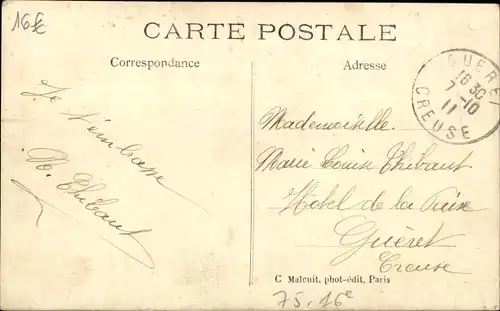 16€
CARTE POSTALE
Correspondance
Adresse
GUERET
16 30
7-10
11
CREUSE
Je t'embrasse
M. Thibaut
Mademoiselle
Marie Louise Thibaut
Hotel de la Paix
Guéret
Creuse
C. Malcuit, phot-édit, Paris
75.16e